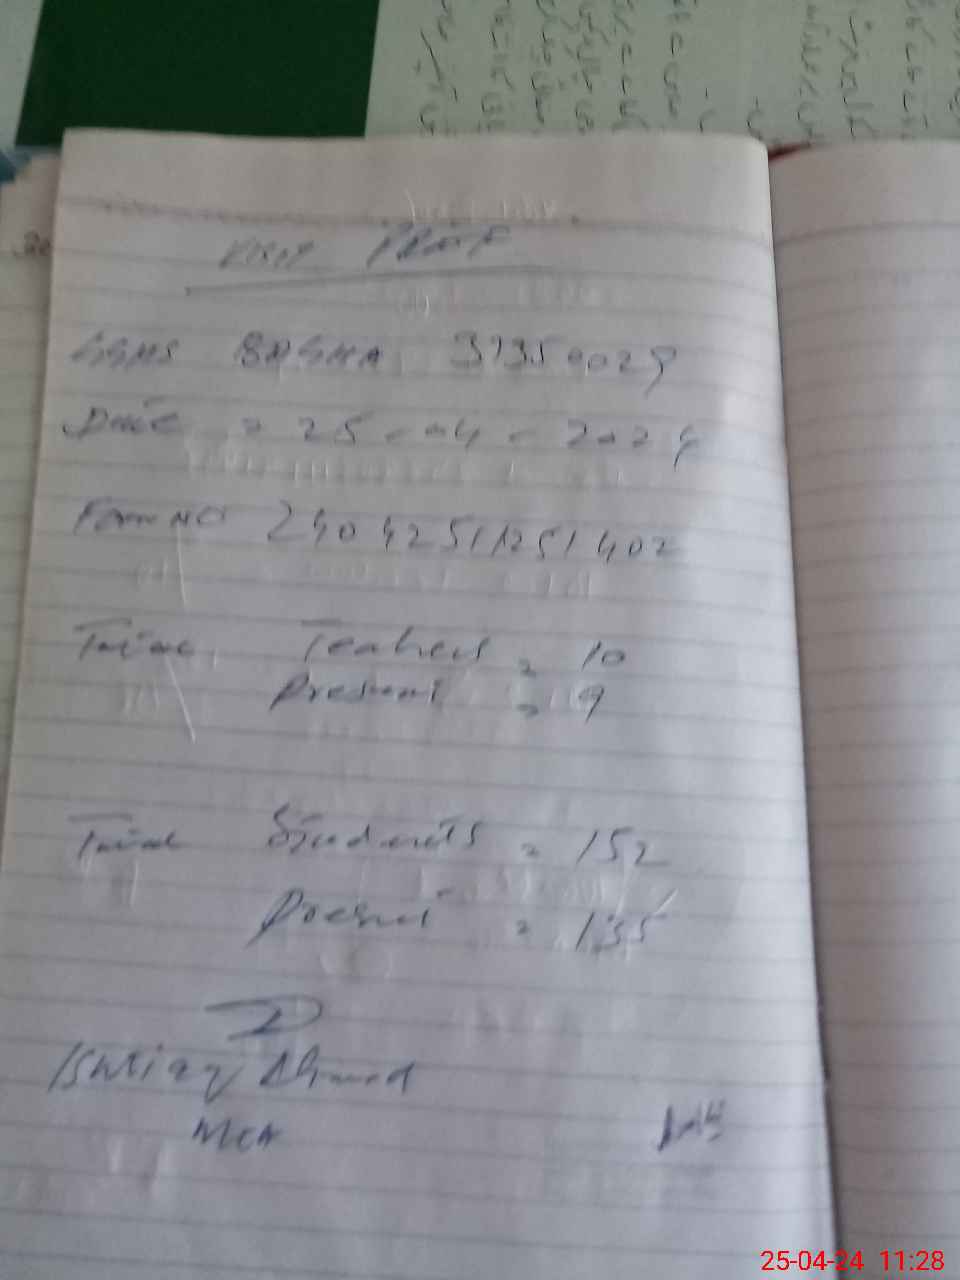 VISIT PROOF
GGHS BASMA 37350029
Date = 25-04-2024
Form NO 24042511251402
Total Teachers = 10
Present = 9
Total Students = 152
Present = 135
Ishtiaq Ahmad
MEA
25-04-24 11:28